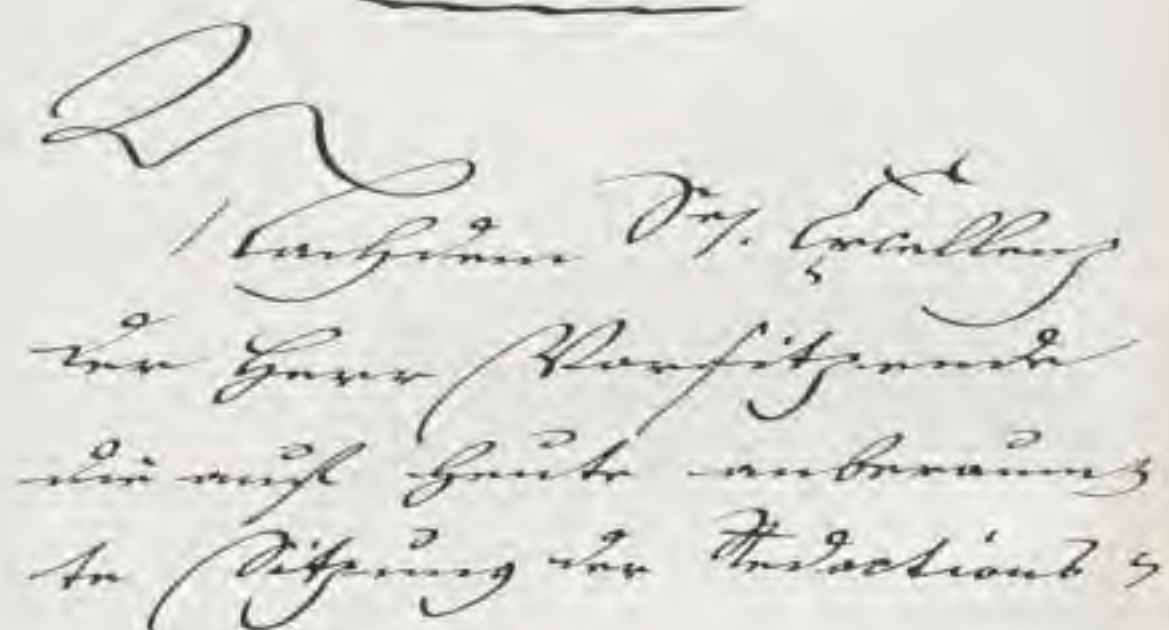 Nachdem Se. Excellenz
der Herr Vorsitzende
die auf heute anberaum-
te Sitzung der Redactions-